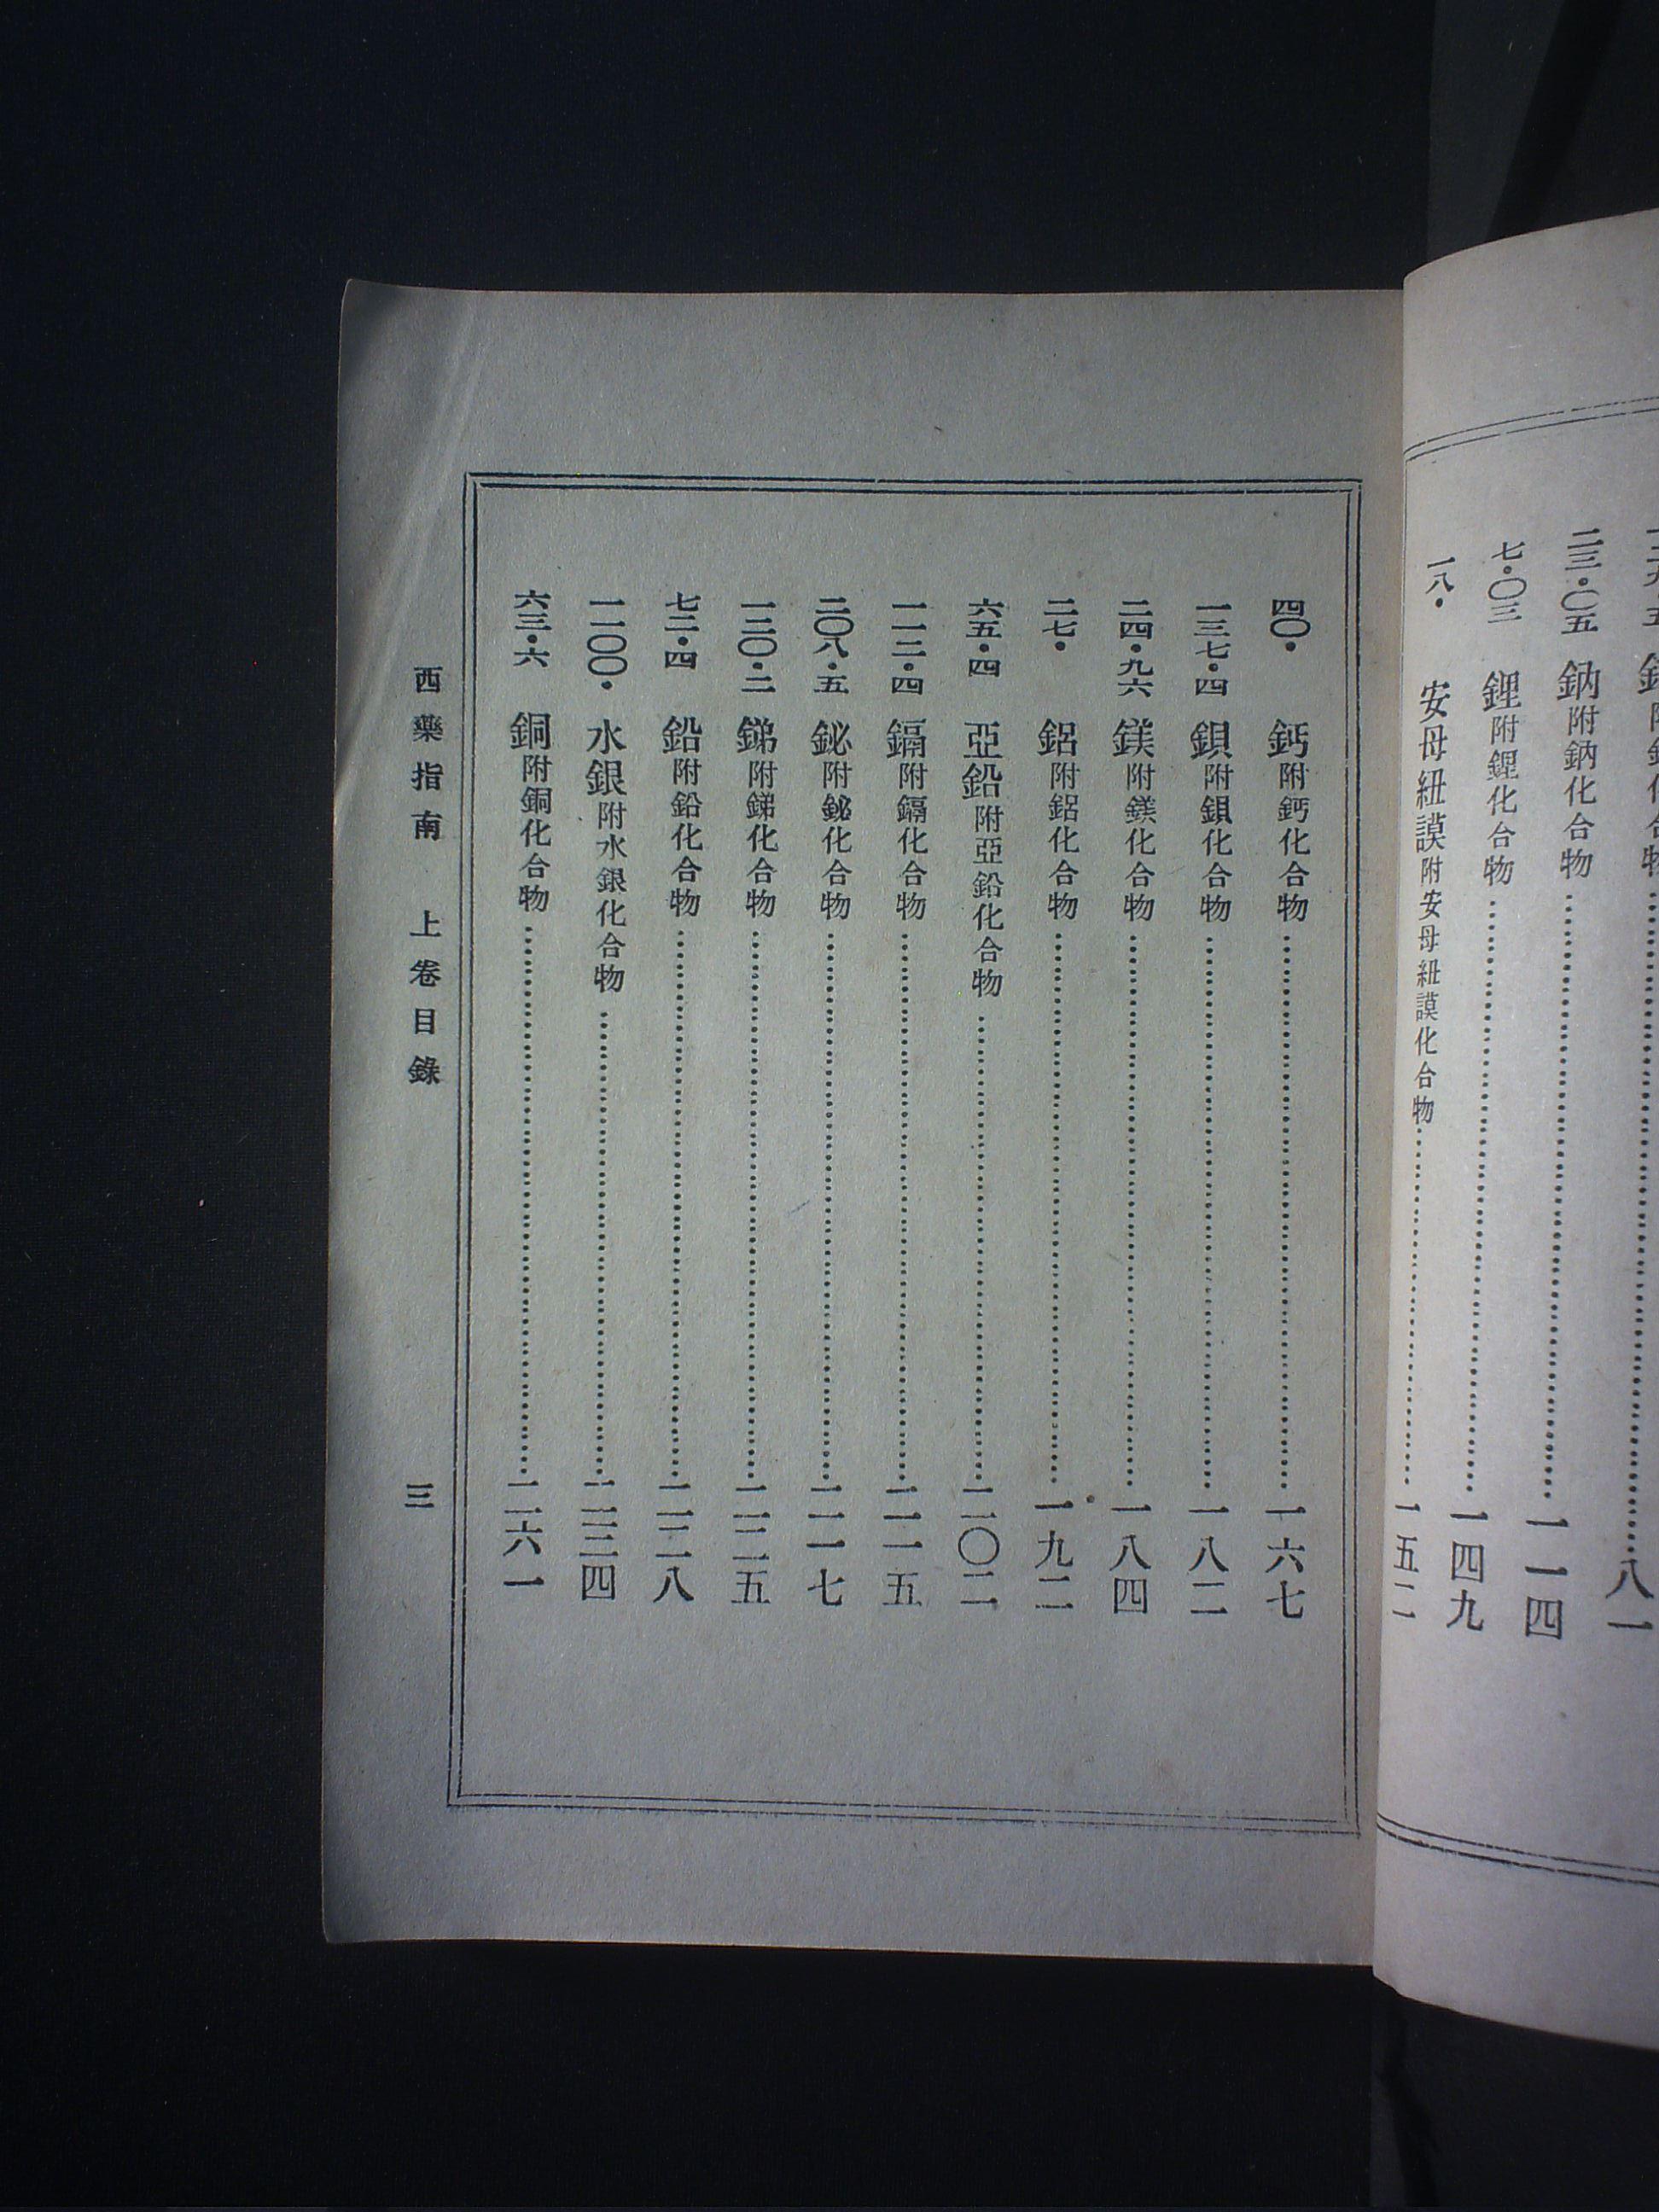 二三・〇五　鈉附鈉化合物………一一四
七・〇三　鋰附鋰化合物………一四九
一八・　安母紐謨附安母紐謨化合物………一五二
四〇・　鈣附鈣化合物………一六七
一三七・四　鋇附鋇化合物………一八二
二四・九六　鎂附鎂化合物………一八四
二七・　鋁附鋁化合物………一九二
六五・四　亞鉛附亞鉛化合物………二〇二
一一二・四　鎘附鎘化合物………二一五
二〇八・五　鉍附鉍化合物………二一七
一二〇・二　銻附銻化合物………二二五
七二・四　鉛附鉛化合物………二二八
二〇〇・　水銀附水銀化合物………二三四
六三・六　銅附銅化合物………二六一
西藥指南　上卷目錄　三